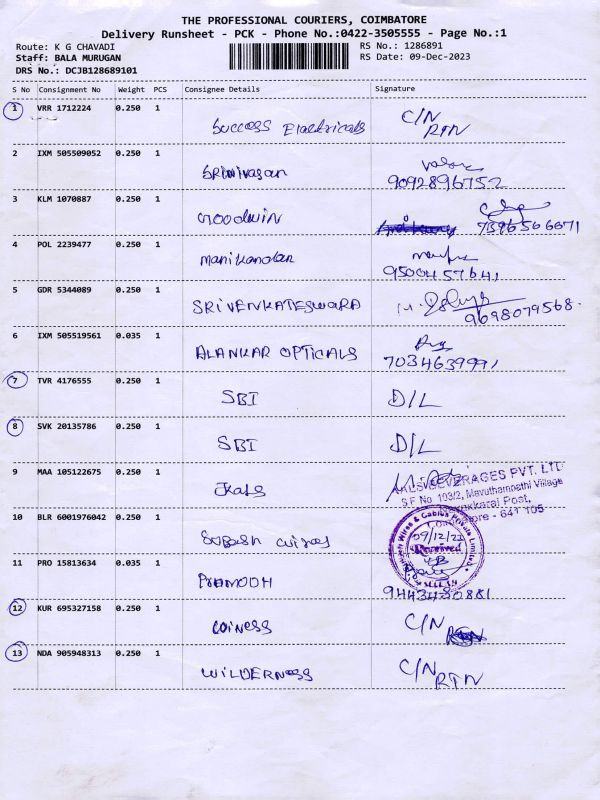 THE PROFESSIONAL COURIERS, COIMBATORE
Delivery Runsheet - PCK - Phone No.:0422-3505555 - Page No.:1
Route: K G CHAVADI
RS No.: 1286891
Staff: BALA MURUGAN
RS Date: 09-Dec-2023
DRS No.: DCJB128689101
S No Consignment No Weight PCS Consignee Details Signature
1 VRR 1712224 0.250 1
Success Electricals C/N
RTN
2 IXM 505509052 0.250 1
Srinivasan
9092896752
3 KLM 1070887 0.250 1
Goodwin 7396566671
4 POL 2239477 0.250 1
Manikandan
9500457641
5 GDR 5344089 0.250 1
SRIVENKATESWARA
9698079568.
6 IXM 505519561 0.035 1
ALANKAR OPTICALS
7034639991
7 TVR 4176555 0.250 1
SBI D/L
8 SVK 20135786 0.250 1
SBI D/L
9 MAA 105122675 0.250 1
BEVERAGES PVT. LTD
S F No 103/2, Mavuthampathi Village
Post,
- 641 105
10 BLR 6001976042 0.250 1
Wires & Cables Private Limited
09/12/23
Received
11 PRO 15813634 0.035 1
PRAMODH
9443480881
12 KUR 695327158 0.250 1
C/N
RTN
13 NDA 905948313 0.250 1
WILDERNESS C/N
RTN